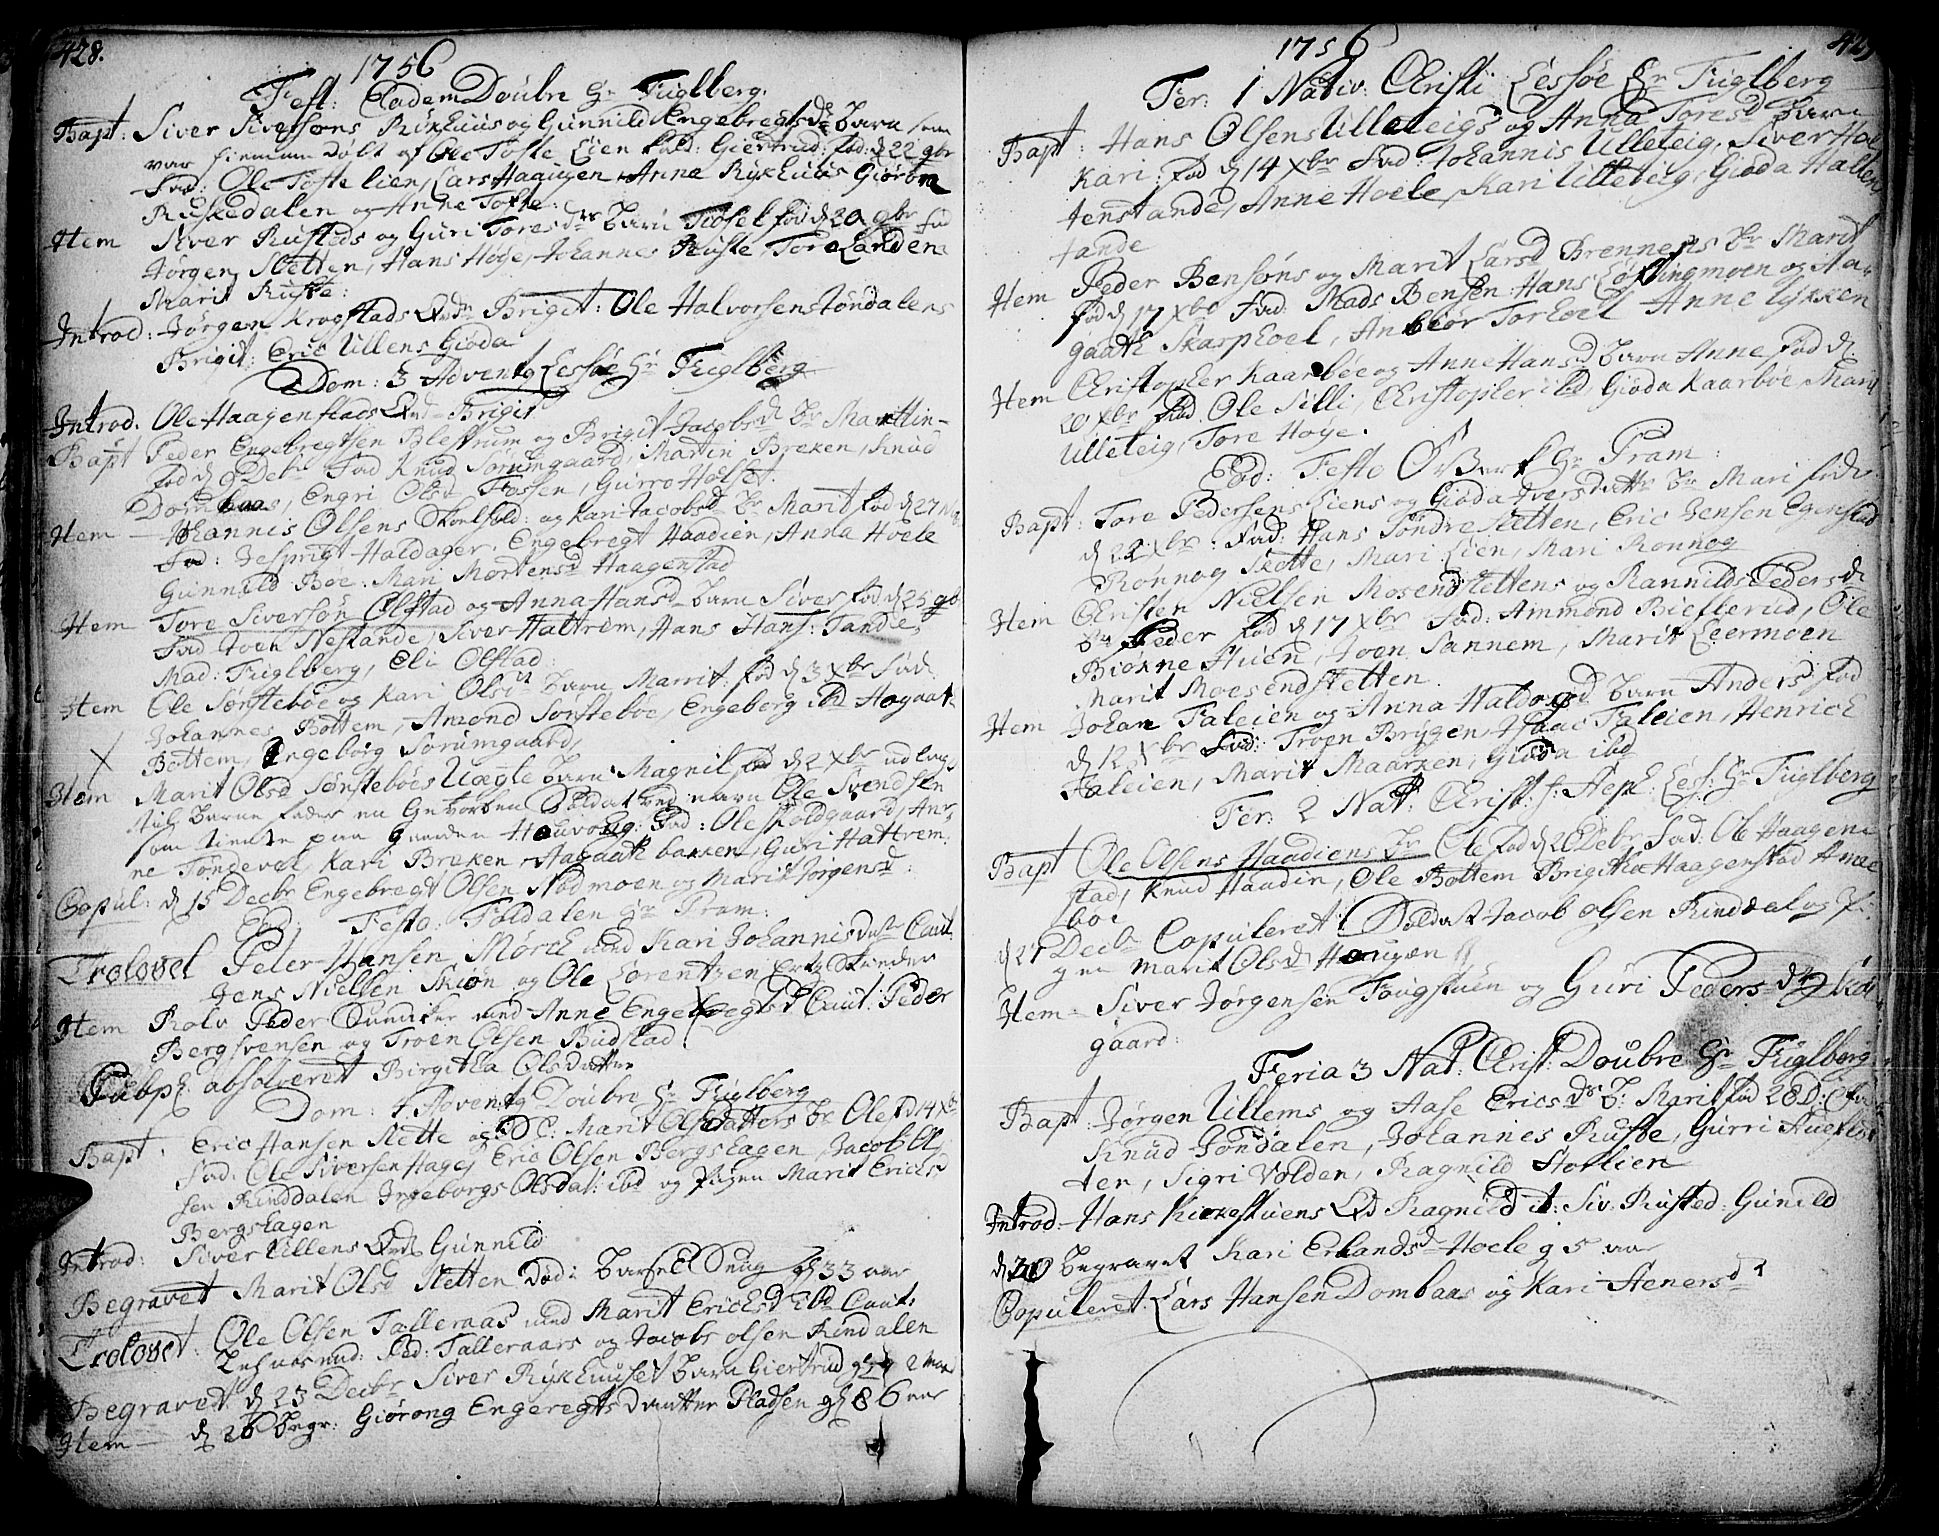 428.
1756
Fest: Eadem Doubre Hr Fuglberg.
Bapt: Siver Siversøns Rykhuus og Gunnild Engebregtsdr barn som
var hiemme døbt af Ole Tofte Lien kald: Giertrud: fød: d 22 9br
Fad: Ole Tofte lien, Lars Haaugen, Anne Rykhuus Giørone
Ruskedalen og Anne Tofte.
Item Siver Rusteds og Guri Toresdr barn Tiøstel fød d 20 9br fad
Jørgen Sletten, Hans Høye, Johannes Ruste, Tore Landen
Marit Ruste:
Introd: Jørgen Krogstads Qvd. Brigit: Ole Halvorsens Jøndalens
Brigit: Eric Ullens Gioda
Dom: 3 Advent Lessøe Hr Fuglberg
Introd. Ole Haagenstads Qvd. Brigit
Bapt Peder Engebregtsen Blestrum og Brigit Jacobsd Br Marthin
fød d 9 Debr Fad Knud Sørumgaard, Martin Breken, Knud
Dombaas, Engri Olsd Fossen, Gurro Holset.
Item Johannis Olsens Skotsfold: og Kari Jacobsd Br Marit fød d 27
Fad: Jesprigt Haldager, Engebregt Haadien, Anna Hoele
Gunnild Bøe. Mari Mortensd Haagenstad
Item Tore Siversøn Olstad og Anna Hansd barn Siver fød d 25 9br
Fad Joen Neslande, Siver Hattrem, Hans Hans: Tande,
Mad: Fuglberg, Eli Olstad
Item Ole Sønstebøe og Kari Olsd barn Marrit fød d 3 Xbr Fad.
Johannes Bottem, Amond Sønstebøe, Engeborg ibd Aagaat
X Bottem, Ingeborg Sørumgaard,
Item Marit Olsd Sønstebøes Uægte barn Magnil fød d 2 Xbr udlagt
til barne fader en Gevorben Soldat ved navn Ole Svendsen
som tiente paa gaarden Fad: Ole Skoldgaard, An-
ne Tøndevel, Kari Breken, Aagaath bakken, Guri Hattrem.
Copul: d 15 Decbr Engebregt Olsen Nødmoen og Marit Jørgensd:
Eod: Festo: Foldalen Hr Pram:
Trolovet Peter Hansen Mørch med Kari Johannisdatt Caut.
Jens Nielsen Skiøn og Ole Lorentzen
Item Rolv Peder med Anne Engebregtsd Caut: Peder
Bergsvensen og Troen Olsen Budstad.
Pub: absolveret Birgitha Olsdatter
Dom: 4 Advent Doubre Hr Fuglberg
Bapt. Eric Hansen Slette og Marit Olsdatters br Ole fd 14 Xbr
Fad: Ole Siversen Hage, Eric Olsen Bergshagen, Jacob Ol-
sen Rinddalen Ingeborgs Olsdat: ibd og Pigen Marit Ericksd
Bergshagen
Introd: Siver Ullens Qvd. Gunnild
Begravet Marit Olsd Sletten Død i Barsel Seng gl 33 aar
Trolovet: Ole Olsen Talleraas med Marit Ericksd ibd Caut:
Ped: Talleraars og Jacobs olsen Rindalen
Begravet d 23 Decbr Siver Rykhuuset barn Giertrud gl 2 Maa
Item d 26 begr: Giørong Engeregts daatter Pladsen gl 86 aar
429
1756
Fer: 1 Nativ: Christi Lessøe Hr Fuglberg
Bapt: Hans Olsens Ulleteigs og Anna Toresd barn
Kari: fød d 14 Xbr Fad: Johannis Ulleteig, Siver Hol
tenstande, Anne Hoele, Kari Ulleteig, Gioda Halten
tande
Item Peder Bensøns og Marit Larsd Brennens br Marit
fød d 17 Xbr Fad: Mads Bensen Hans Løftingmoen og Aa-
gaath Skarphoel, Anbiør Torhoel Anne Lykken
Item Christopher Kaarbøe og Anne Hansd barn Anne fød d
20 Xbr Fad Ole Silli, Christopher ibd Gioda Kaarbøe, Marit
Ulleteig, Tore Høye.
Eod: Festo Hr Pram:
Bapt: Tore Pedersens Liens og Gioda Iversdatt br Mari føde
d 22 Xbr: Fad: Hans Søndre Sletten, Eric Jensen Egenstad
Rønnog Slette, Mari Lien, Mari Rønnog
Item Christen Nielsen Mosendslettens og Rannilds Pedersd
br Peder fød d 17 Xbr Fad: Ammond Biefterud, Ole
Biøkne Stuen, Joen Sannem, Marit Leermoen
Marit Moesendsletten.
Item Johan Faleien og Anna Haldogsd barn Anders fød
d 12 Xbr Fad: Troen Brygen, Isaac Faleien, Henrich
Faleien, Marit Maarken, Gioda ibd
Fer: 2 Nat: Christ: f: Steph: Less: Hr Fuglberg
Bapt Ole Olsens Haadiens br Ole fød d 20 Debr Fad: Ole Haagen
stad, Knud Haadin, Ole Bottem Brigitha Haagenstad Anne
bøe
d 27 Decbr Copuleret: Soldat Jacob Olsen Rinddal og Pi-
gen Marit Olsd Haugen
Item Siver Jørgensen Tougstuen og Guri Pedersdr Skol
gaard:
Feria 3 Nat: Christ: Doubre Hr Fuglberg
Bapt: Jørgen Ullems og Aase Ericsdr b: Marit fød 28 D:
Knud Jøndalen, Johannes Ruste, Gurri
ten, Sigri Volden, Ragnild Storlien
Introd: Hans Kirkestuens Qvd Ragnild it: Siv: Rusted: Gunild
d 30 begravet Kari Erlandsd Hoele g 5 aar
Copuleret: Lars Hansen Dombaas og Kari Stenersdr